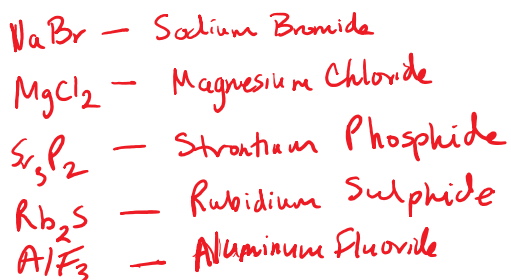 NaBr — Sodium Bromide
MgCl₂ — Magnesium Chloride
Sr₃P₂ — Strontium Phosphide
Rb₂S — Rubidium Sulphide
AlF₃ — Aluminum Fluoride